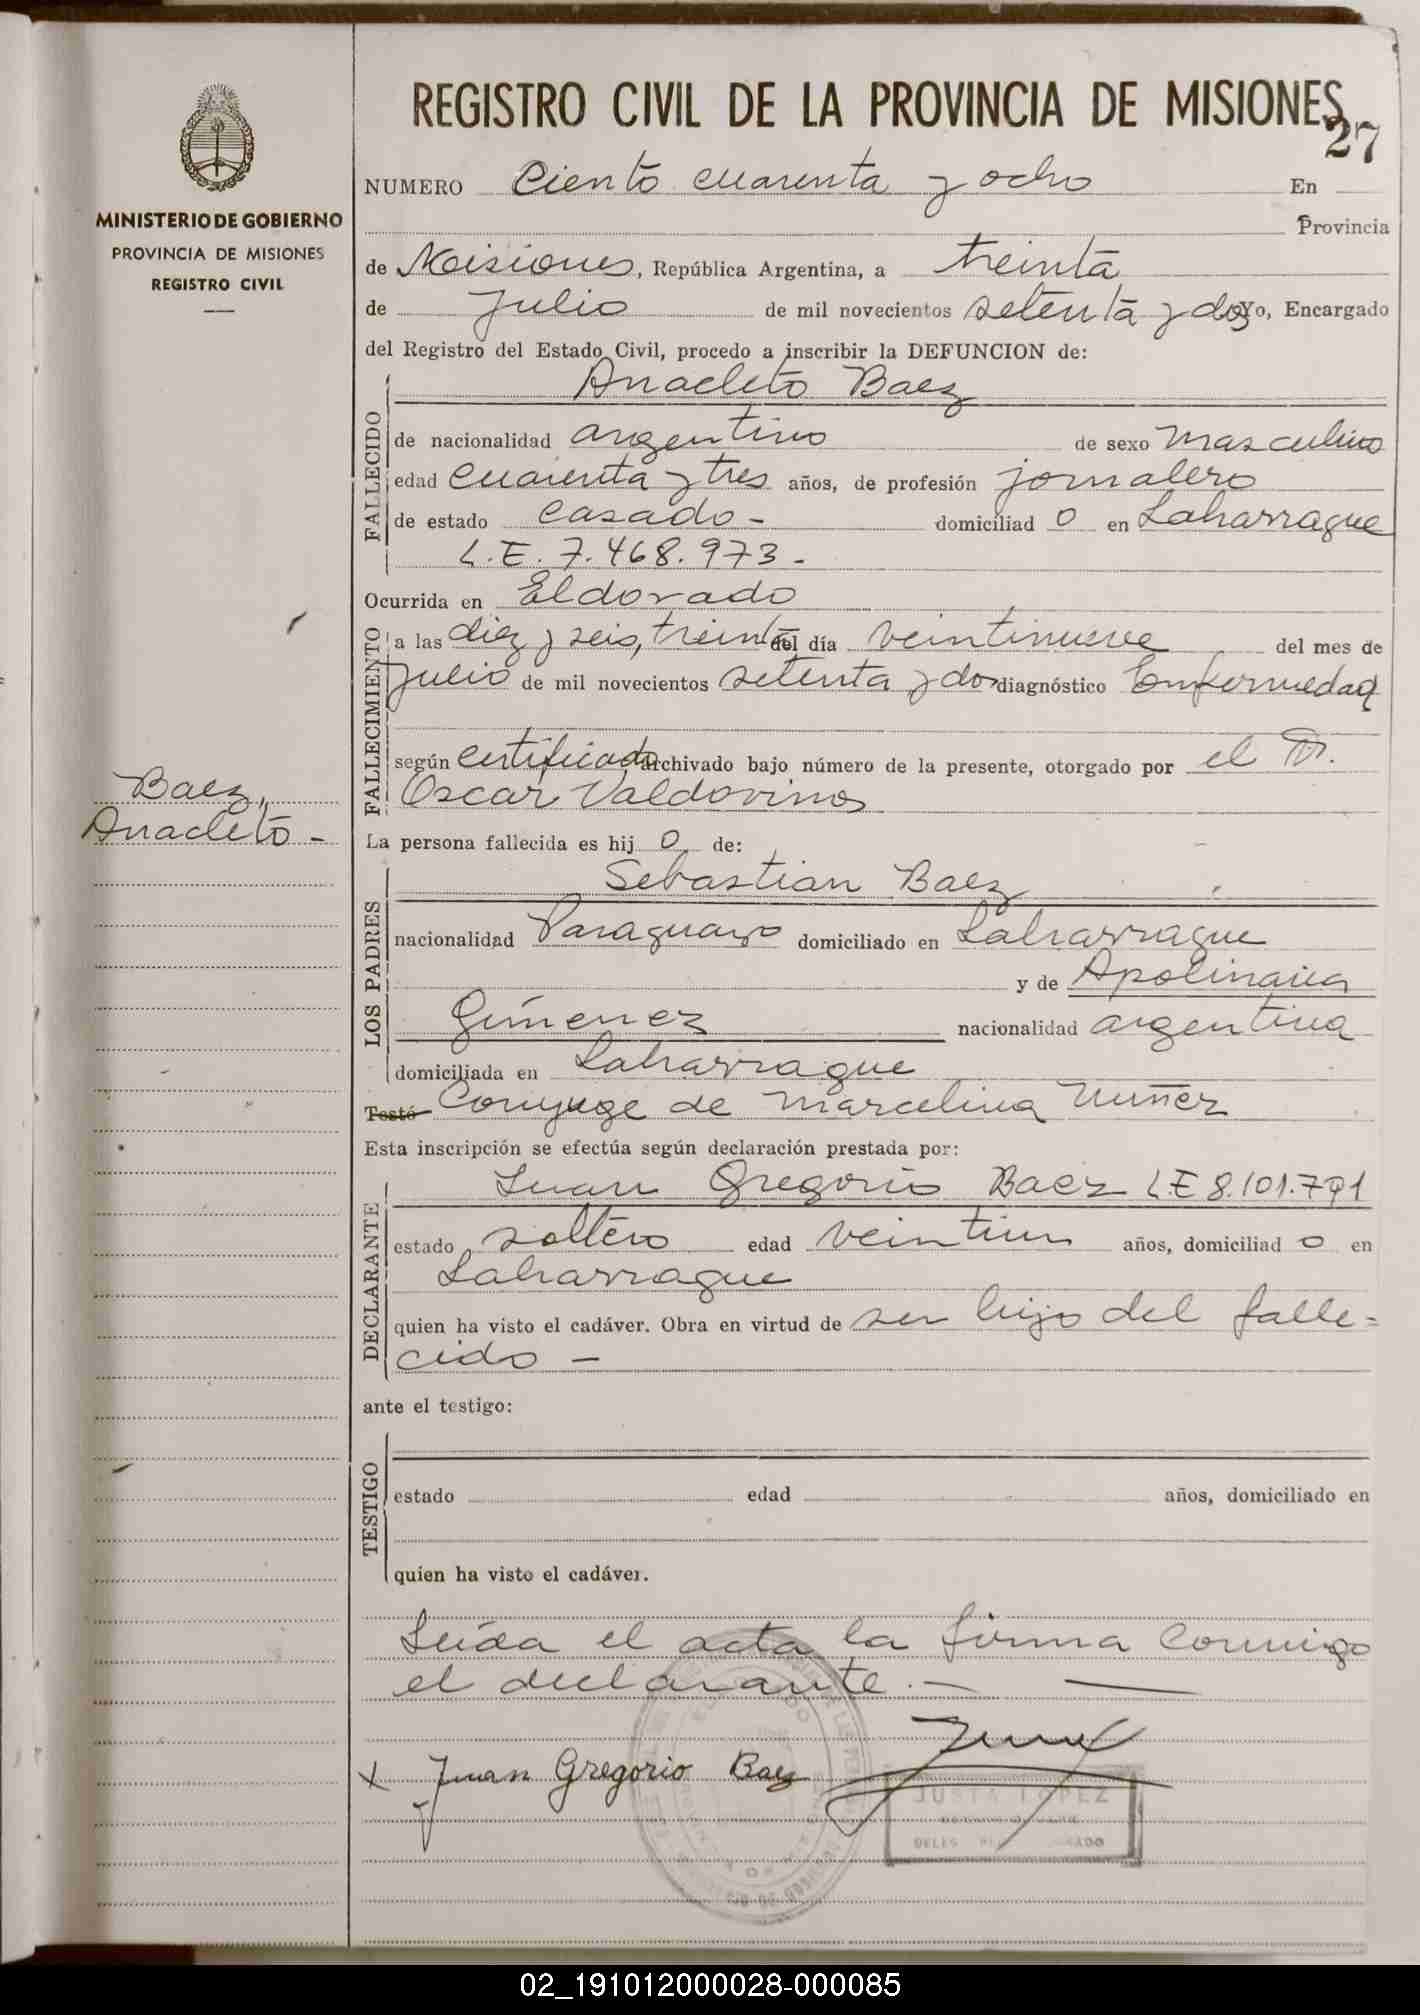 REGISTRO CIVIL DE LA PROVINCIA DE MISIONES
27
MINISTERIO DE GOBIERNO
PROVINCIA DE MISIONES
REGISTRO CIVIL
NUMERO Ciento cuarenta y ocho En
Provincia
de Misiones, República Argentina, a treinta
de Julio de mil novecientos setenta y dos Yo, Encargado
del Registro del Estado Civil, procedo a inscribir la DEFUNCION de:
Anacleto Baez
FALLECIDO
de nacionalidad argentino de sexo masculino
edad cuarenta y tres años, de profesión jornalero
de estado casado - domiciliad o en Laharrague
L.E. 7.468.973 -
Ocurrida en Eldorado
FALLECIMIENTO
a las diez y seis, treinta del día veintinueve del mes de
Julio de mil novecientos setenta y dos diagnóstico Enfermedad
según certificado archivado bajo número de la presente, otorgado por el Dr.
Oscar Valdovinos
Baez,
Anacleto -
La persona fallecida es hij o de:
LOS PADRES
Sebastian Baez
nacionalidad Paraguayo domiciliado en Laharrague
y de Apolinaria
Gimenez nacionalidad argentina
domiciliada en Laharrague
Testó Conyuge de Marcelina Nuñez
Esta inscripción se efectúa según declaración prestada por:
DECLARANTE
Juan Gregorio Baez L.E 8.101.791
estado soltero edad veintiun años, domiciliad o en
Laharrague
quien ha visto el cadáver. Obra en virtud de ser hijo del falle=
cido -
ante el testigo:
TESTIGO
estado edad años, domiciliado en
quien ha visto el cadáver.
Leída el acta la firma conmigo
el declarante. -
x Juan Gregorio Baez
JUSTA LOPEZ
02_191012000028-000085